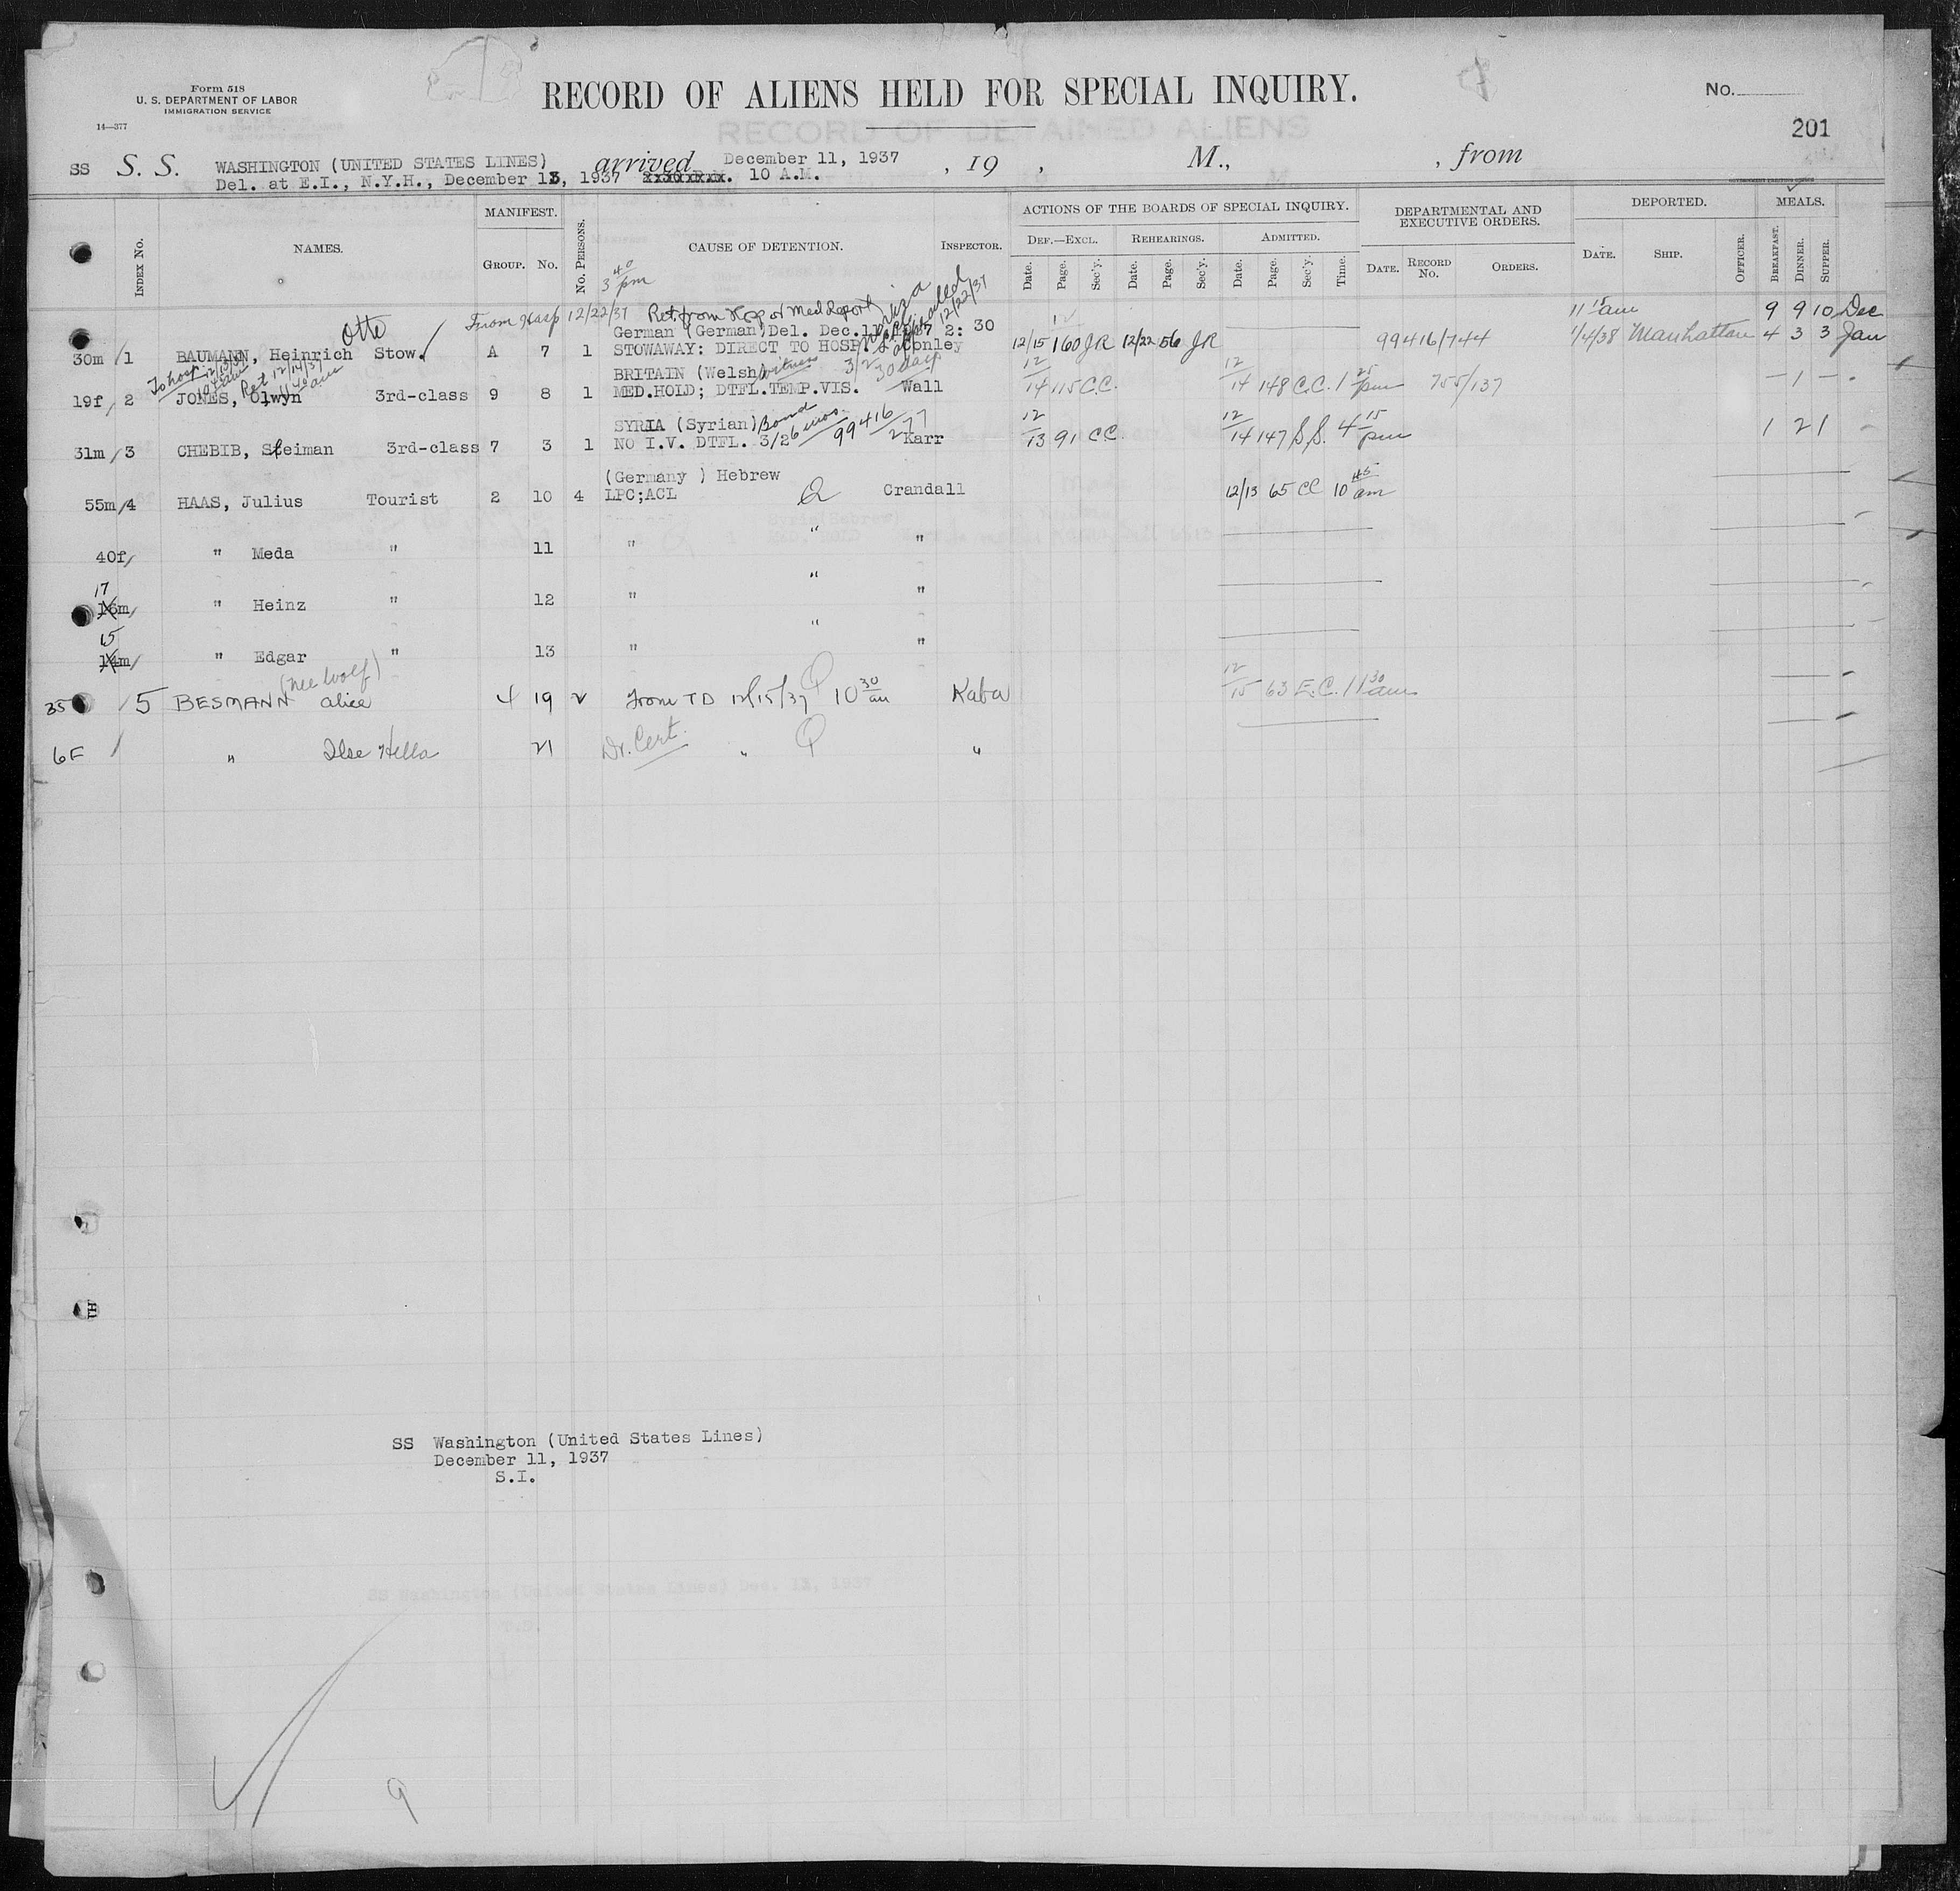 Form 518
U. S. DEPARTMENT OF LABOR
IMMIGRATION SERVICE
14—377
RECORD OF ALIENS HELD FOR SPECIAL INQUIRY.
No.
201
RECORD OF DETAINED ALIENS
SS S. S. WASHINGTON (UNITED STATES LINES) arrived December 11, 1937 , 19 , M., , from
Del. at E.I., N.Y.H., December 13, 1937 10 A.M.
INDEX No. NAMES. MANIFEST. GROUP. No. No. PERSONS. CAUSE OF DETENTION. INSPECTOR. ACTIONS OF THE BOARDS OF SPECIAL INQUIRY. DEF.—EXCL. Date. Page. Sec'y. REHEARINGS. Date. Page. Sec'y. ADMITTED. Date. Page. Sec'y. Time. DEPARTMENTAL AND EXECUTIVE ORDERS. DATE. RECORD No. ORDERS. DEPORTED. DATE. SHIP. OFFICER. MEALS. BREAKFAST. DINNER. SUPPER.
3 40 pm
Otto From Hosp 12/22/37 Ret. from Hosp 12/22/37 11 15 am 9 9 10 Dec
German (German) Del. Dec. 2: 30
30m / 1 BAUMANN, Heinrich Stow. A 7 1 STOWAWAY: DIRECT TO HOSP. Conley 12/15 160 JR 12/22 56 JR 99416/744 1/4/38 Manhattan 4 3 3 Jan
To hosp 12/13/37 Ret 12/14/37 am BRITAIN (Welsh) witness
19f / 2 JONES, Olwyn 3rd-class 9 8 1 MED.HOLD; DTFL.TEMP.VIS. Wall 12/14 115 C.C. 12/14 148 C.C. 1 25 pm 755/137 — 1 —
SYRIA (Syrian) Bond 6 mos. 99416/277
31m / 3 CHEBIB, Sleiman 3rd-class 7 3 1 NO I.V. DTFL. 3/26 Karr 12/13 91 CC. 12/14 147 S.S. 4 15 pm 1 2 1
(Germany ) Hebrew
55m/4 HAAS, Julius Tourist 2 10 4 LPC;ACL Crandall 12/13 65 CC 10 45 am
40f/ " Meda " 11 " " "
17
16m/ " Heinz " 12 " " "
15
14m/ " Edgar " 13 " " "
(nee Wolf)
35 / 5 BESMANN Alice 4 19 2 From TD 12/15/37 10 30 am Kaba 12/15 63 E.C. 11 30 am
6F / " Ilse Hella 21 Dr. Cert. " "
TH
SS Washington (United States Lines)
December 11, 1937
S.I.
SS Washington (United States Lines) Dec. 13, 1937
9